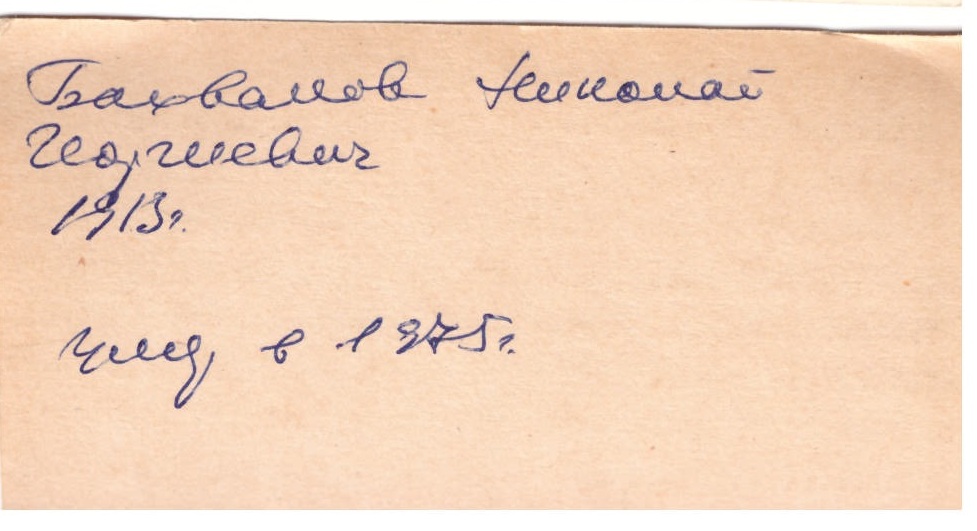 Бахвалов Николай
Георгиевич
1913г.
умер в 1975г.